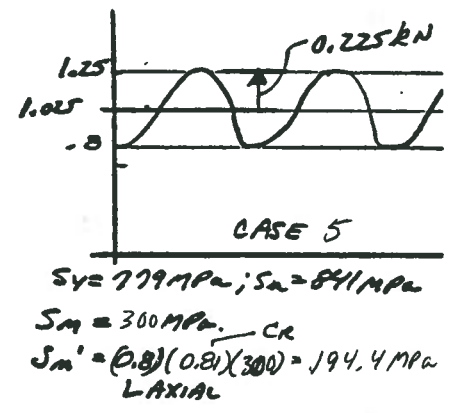 0.225kN
1.25
1.025
.8
CASE 5
Sy= 779MPa; Su=841MPa
Sm = 300MPa.
CR
Sm' = (0.8)(0.81)(300) = 194.4 MPa
AXIAL